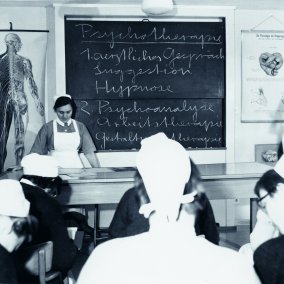 Psychotherapie
1. aerztliches Gespräch
Suggestion
Hypnose
2. Psychoanalyse
Arbeitstherapie
Gestaltungstherapie